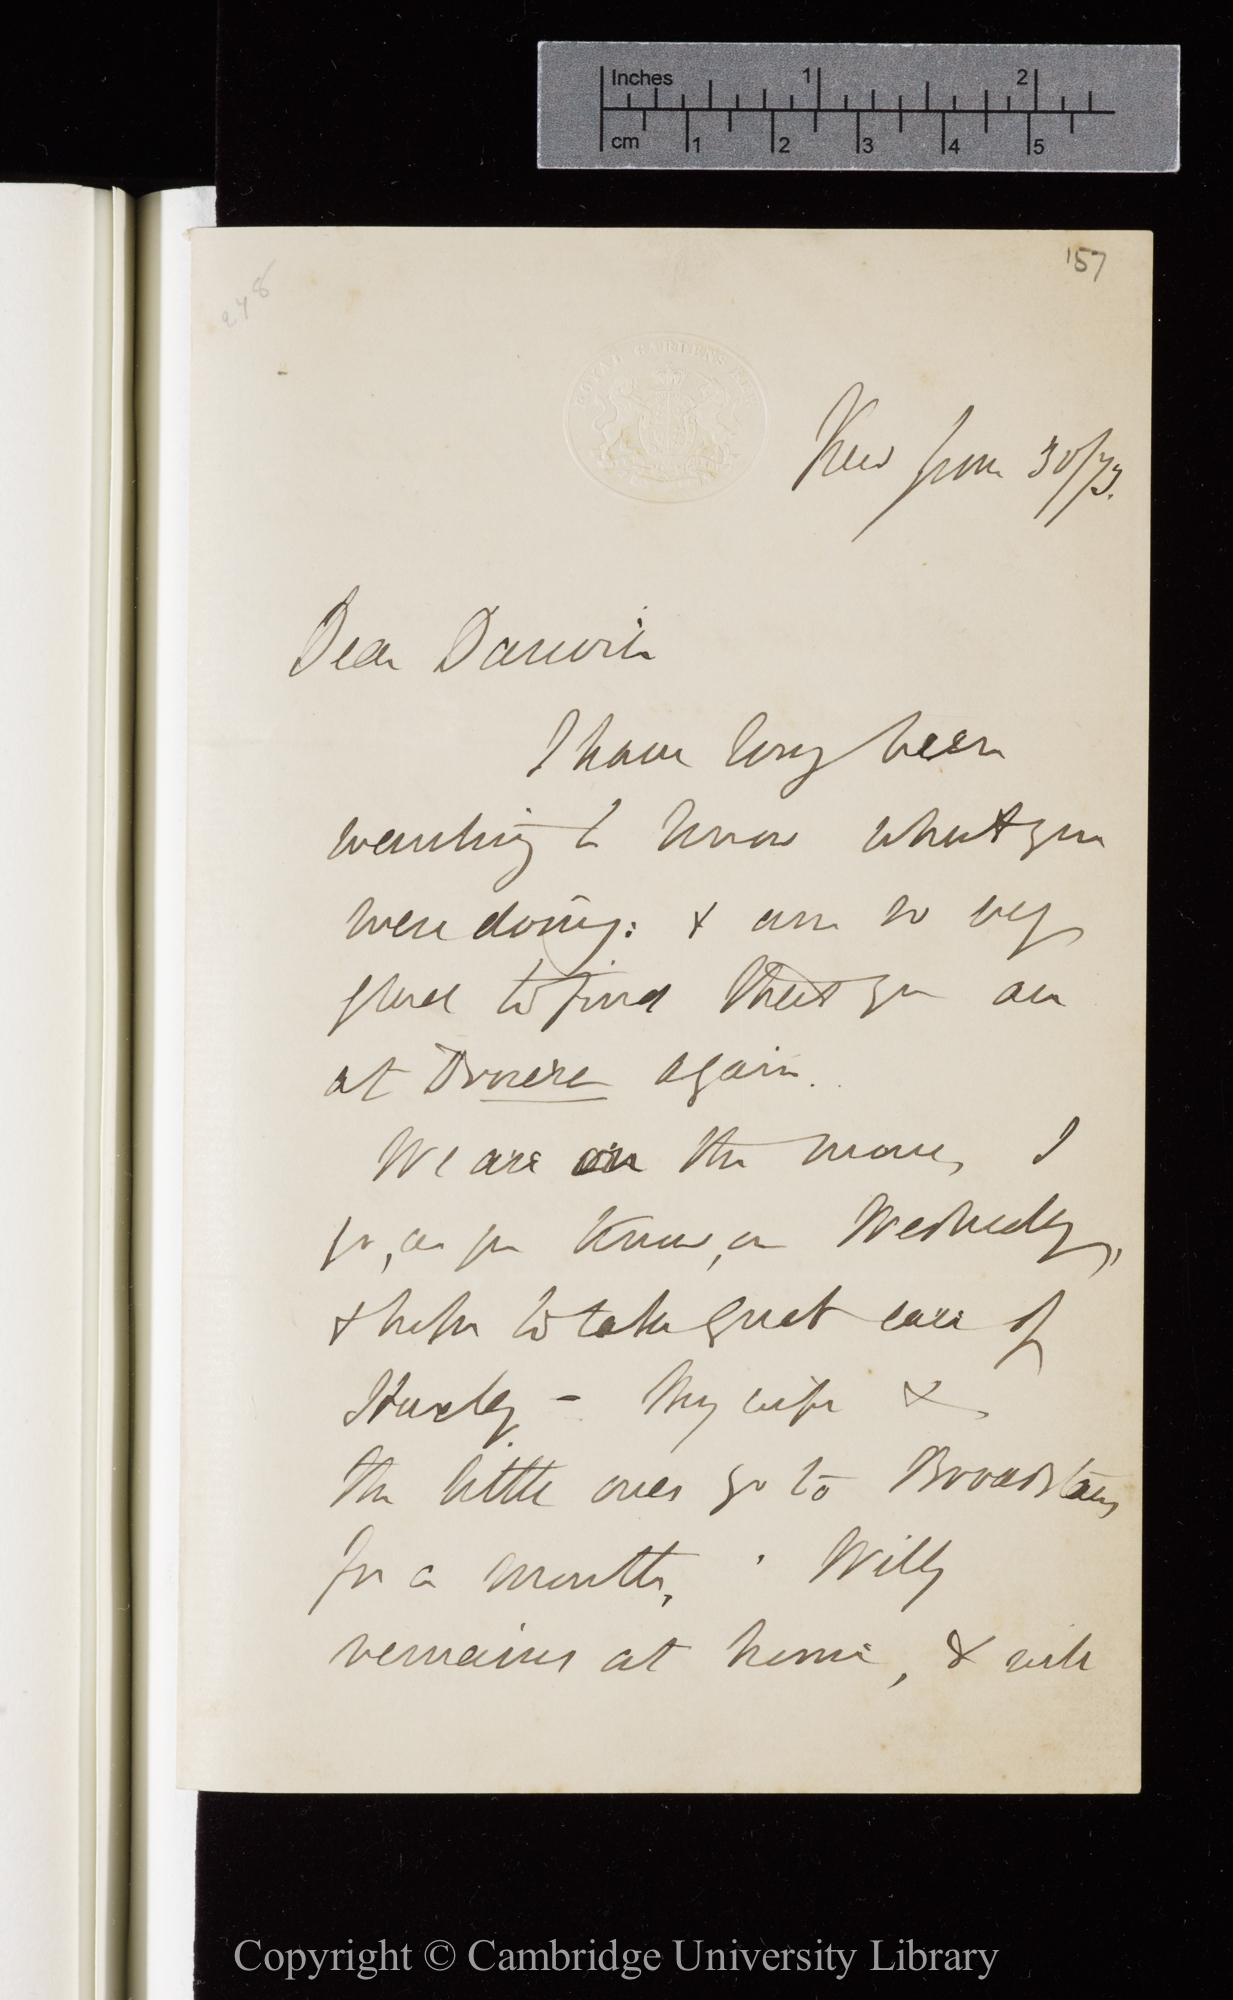 Inches 1 2
cm 1 2 3 4 5
157
248
ROYAL GARDENS KEW
Kew June 30/73.
Dear Darwin
I have long been
wanting to know what you
were doing: & am so very
glad to find that you are
at Drosera again.
We are on the move, I
go, as you know, on Wednesday,
& hope to take great care of
Huxley – My wife &
the little ones go to Broadstairs
for a month, Willy
remains at home, & will
Copyright © Cambridge University Library